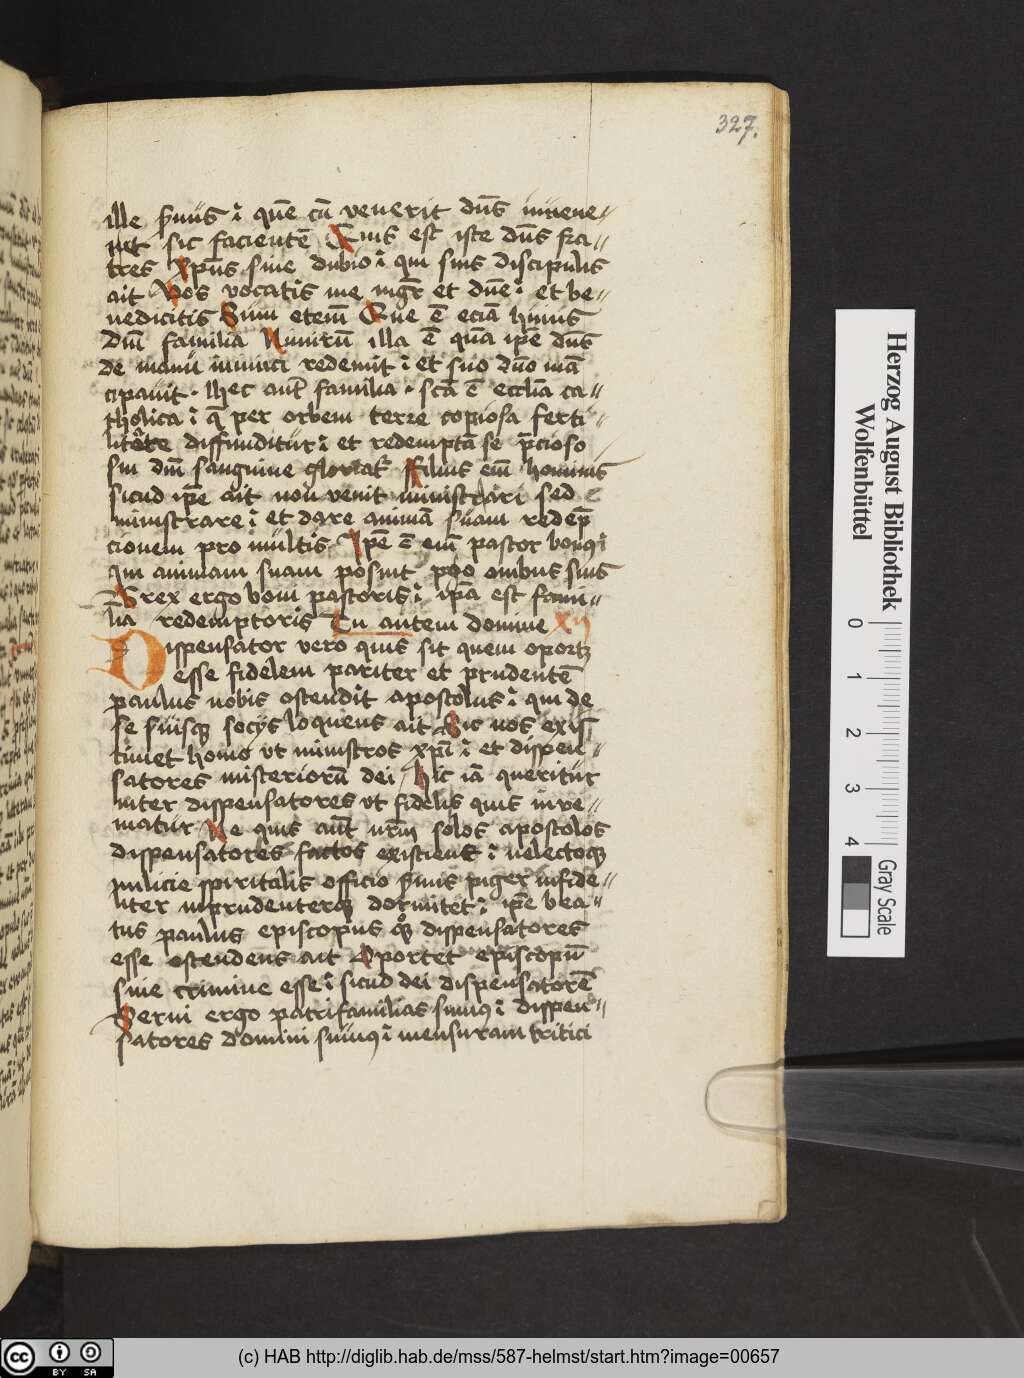 327.
ille ẜuus ⁊ quē cū venerit dūs inuene⸗
rit sic facientē Quis est iste dn̄s fra⸗
tres xp̄us sine dubio ⁊ qui suis discipulis
ait Vos vocatis me mgr̄ et dn̄e ⁊ et be⸗
nedicitis Sum etem̄ Que ē eciā huius
dn̄i familia Nimirū illa ē quā ip̄e dn̄s
de manu inimici redemit ⁊ et suo dn̄o mā
cipauit. Hec aut̄ familia. scā ē eccl̄ia ca⸗
tholica ⁊ q̄ per orbem terre copiosa ferti⸗
litate diffunditur ⁊ et redemptā se p̄cioso
sui dn̄i sanguine gloriat̄ Filius em̄ hominis
sicud ip̄e ait non venit ministrari sed
ministrare ⁊ et dare animā suam redēp
cionem pro multis. Ip̄e ē em̄ pastor bonus
qui animam suam posuit pro omibus suis
Grex ergo boni pastoris ⁊ ip̄a est fami⸗
lia redemptoris Tu autem domine
Dispensator vero quis sit quem oportz
esse fidelem pariter et prudentē
paulus nobis ostendit apostolus ⁊ qui de
se suisqz socijs loquens ait Sic nos exis
timet homo vt ministros xp̄i ⁊ et dispen⸗
satores misteriorū dei Hic iā queritur
inter dispensatores vt fidelis quis inue⸗
niatur Ne quis aut̄ nr̄m solos apostolos
dispensatores factos existient ⁊ neclectoqz
milicie spiritalis officio ẜuus piger infide⸗
liter inprudenterqz dormitet ⁊ ip̄e bea⸗
tus paulus episcopus qqz dispensatores
esse ostendens ait Oportet episcopū
sine crimine esse ⁊ sicud dei dispensatorē
Serui ergo patrifamilias sumus ⁊ dispen⸗
satores domini sumus ⁊ mensuram tritici
Herzog August Bibliothek
Wolfenbüttel
0 1 2 3 4
Gray Scale
cc BY SA
(c) HAB http://diglib.hab.de/mss/587-helmst/start.htm?image=00657